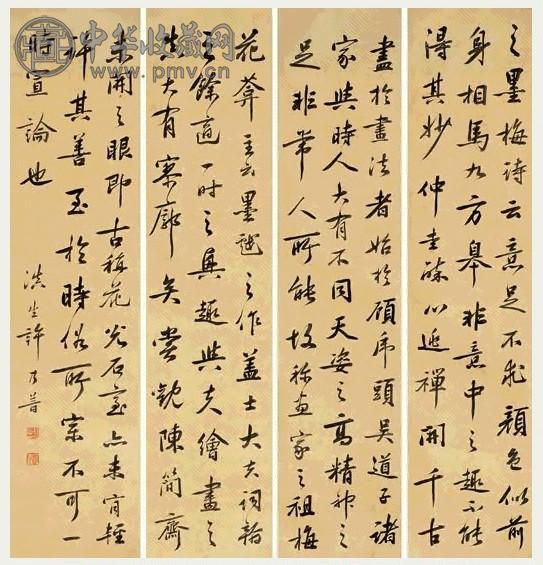 之墨梅詩云意足不求顏色似前
身相馬九方皋非意中之趣不能
得其妙仲圭師心逃禪開千古
盡於畫法者始於顧虎頭吳道子諸
家與時人大有不同天姿之高精神之
足非常人所能故稱畫家之祖梅
花菴主云墨戲之作蓋士大夫詞翰
之餘適一時之興趣與夫繪畫之
流大有寥廓矣嘗觀陳簡齋
未開之眼即古稱花光石室亦未肯輕
許其善至於時俗所宗不可一
時宣論也
滇生許乃普
中华收藏网
www.pmv.cn